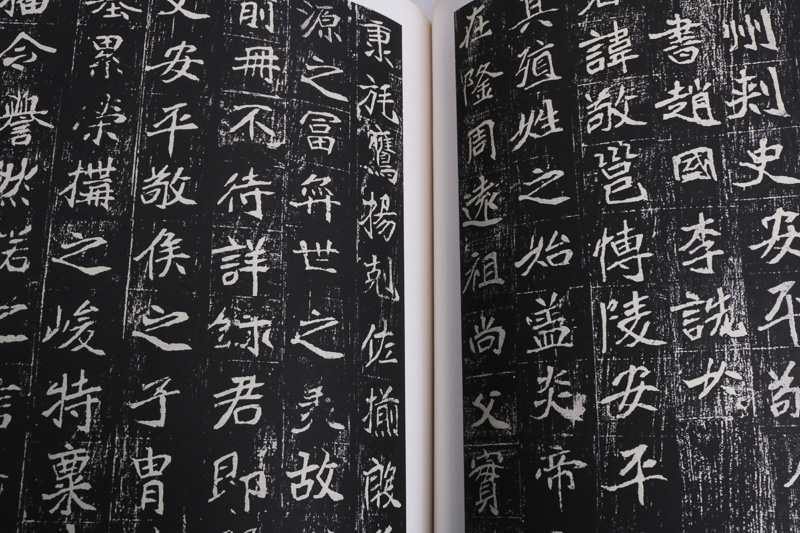 州刺史安平敬
書趙國李詵⼤
君諱敬邕愽陵安平
其殖姓之始蓋炎帝
在隆周遠祖尚父實
秉旄鷹揚剋佐揃殷
源之冨弈世之羙故
前冊不待詳録君即
父安平敬侯之子胄
基累榮搆之峻特稟
播令譽然諾之言